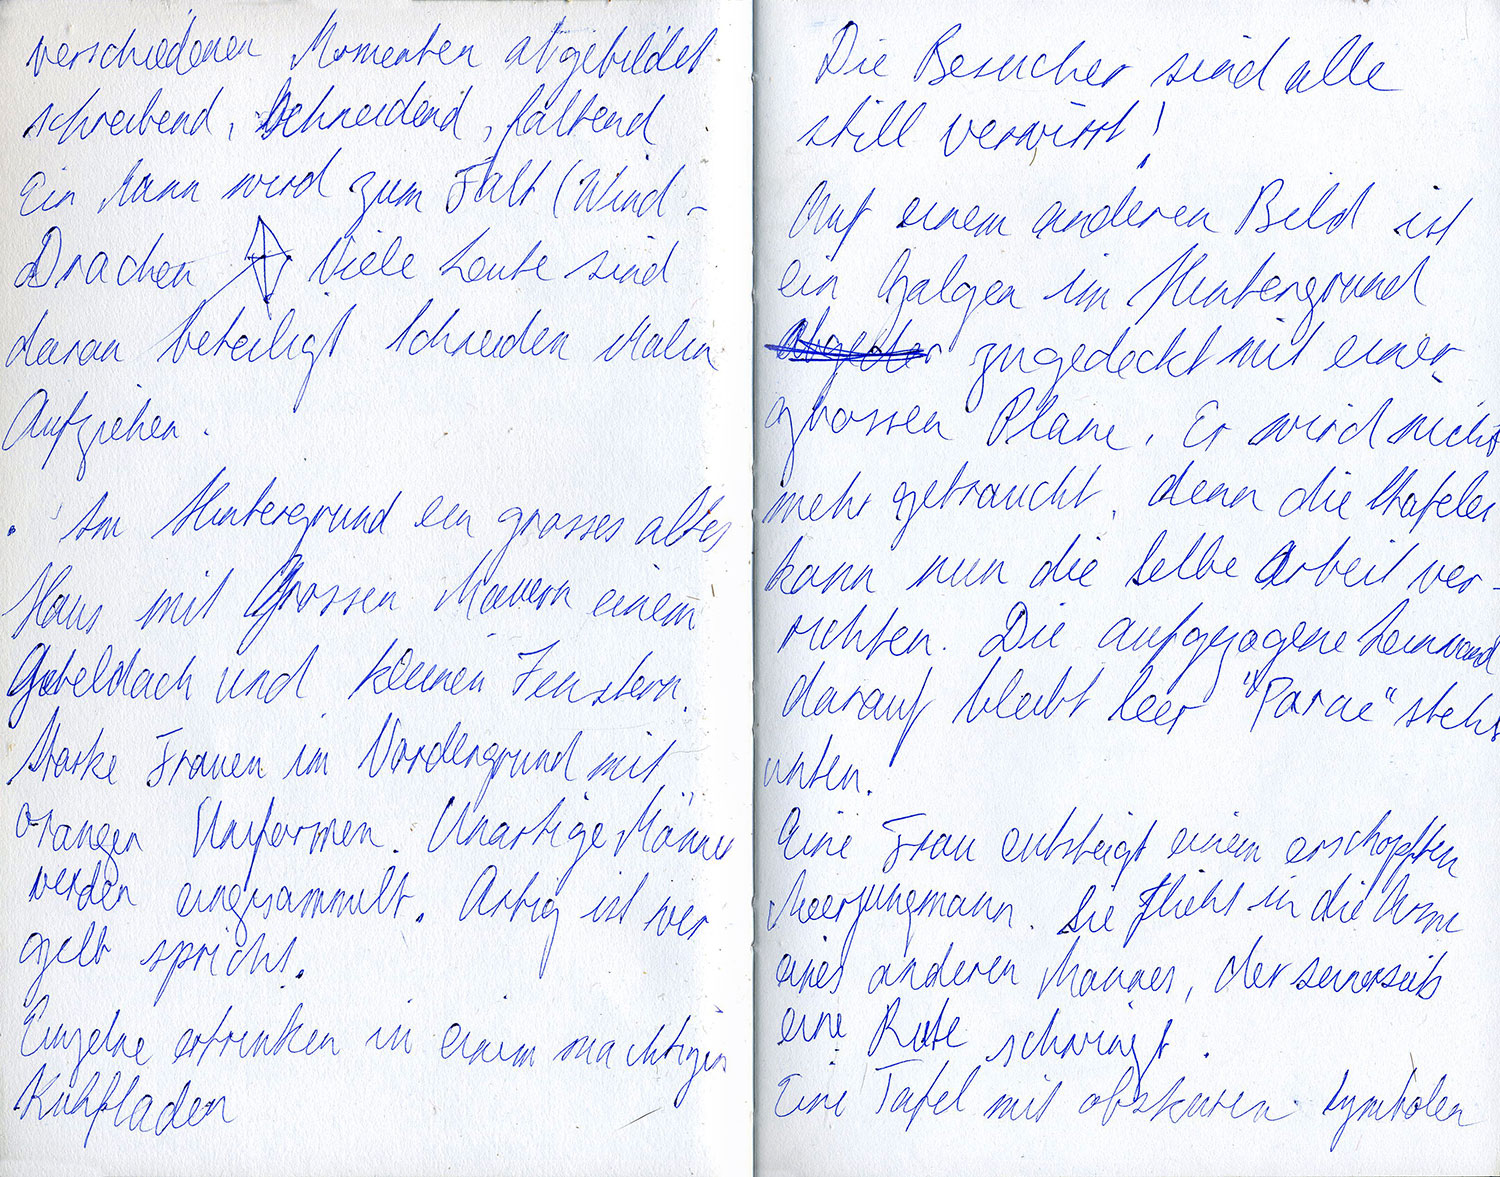 verschiedenen Momenten abgebildet
schreibend, schneidend, faltend
Ein Mann wird zum Falt (Wind-
Drachen Viele Leute sind
daran beteiligt Schneiden Malen
Aufziehen.
. Im Hintergrund ein grosses altes
Haus mit Grossen Mauern einem
Gibeldach und kleinen Fenstern.
Starke Frauen im Vordergrund mit
orangen Uniformen. Unartige Männer
werden eingesammelt. Artig ist wer
gelb spricht.
Einzelne ertrinken in einem mächtigen
Kuhfladen
Die Besucher sind alle
still verwirrt!
Auf einem anderen Bild ist
ein Galgen im Hintergrund
zugedeckt mit einer
grossen Plane. Er wird nicht
mehr gebraucht, denn die Stafelei
kann nun die Selbe Arbeit ver-
richten. Die aufgezogene Leinwand
darauf bleibt leer "Parae" steht
unten.
Eine Frau entsteigt einem erschöpften
Meerjungmann. Sie flieht in die Arme
eines anderen Mannes, der seinerseits
eine Rute schwingt.
Eine Tafel mit obskuren Symbolen